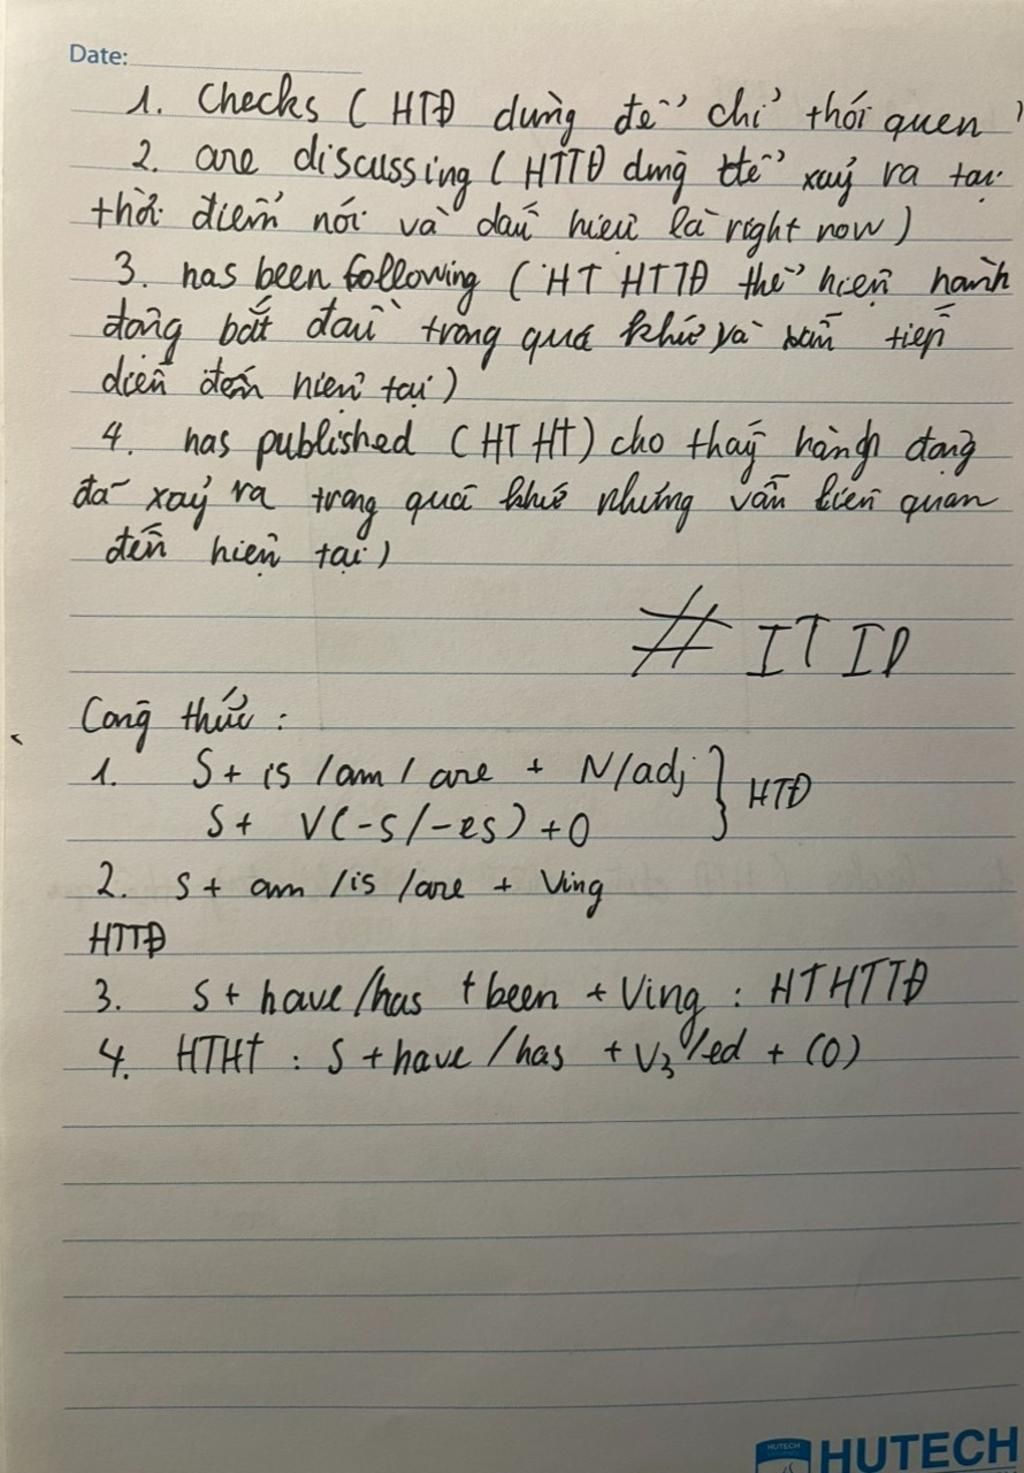 Date:
1. Checks ( HTĐ dùng để chỉ thói quen )
2. are discussing ( HTTĐ dùng để xảy ra tại
thời điểm nói và dấu hiệu là right now )
3. has been following ( HT HTTĐ thể hiện hành
động bắt đầu trong quá khứ và vẫn tiếp
diễn đến hiện tại )
4. has published ( HT HT ) cho thấy hành động
đã xảy ra trong quá khứ nhưng vẫn liên quan
đến hiện tại )
# ITID
Công thức :
1. S + is / am / are + N/adj } HTĐ
S + V(-s/-es) + O
2. S + am / is / are + Ving
HTTĐ
3. S + have / has + been + Ving : HTHTTĐ
4. HTHT : S + have / has + V3/ed + (O)
HUTECH
HUTECH